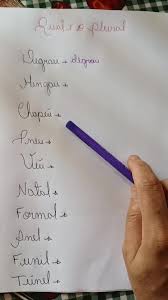 Qual é o plural
Degrau → degrau
Mingau →
Chapéu →
Pneu →
Véu →
Natal →
Formal →
Anel →
Funil →
Túnel →